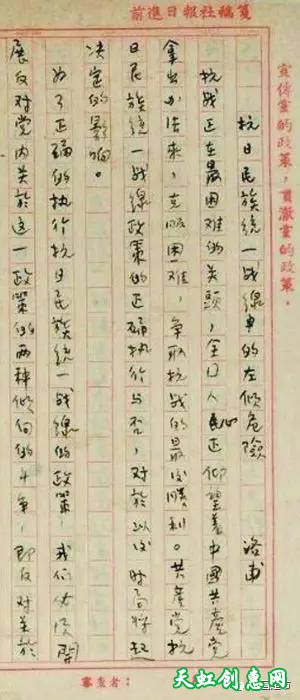 前進日報社稿箋
宣傳黨的政策，貫澈黨的政策。
抗日民族统一战線中的左倾危險 洛甫
抗战正在最困难的关頭，全国人民正仰望着中國共產党
拿出办法来，克服困难，争取抗战的最後勝利。共產党抗
日民族统一战線政策的正确执行与否，对於以後时局将起
决定的影响。
为了正确的执行抗日民族统一战線的政策 我们必须開
展反对党内关於这一政策的两种倾向的斗争，即反对关於
審查者：
天虹创意网
www.rainbowsoft.org